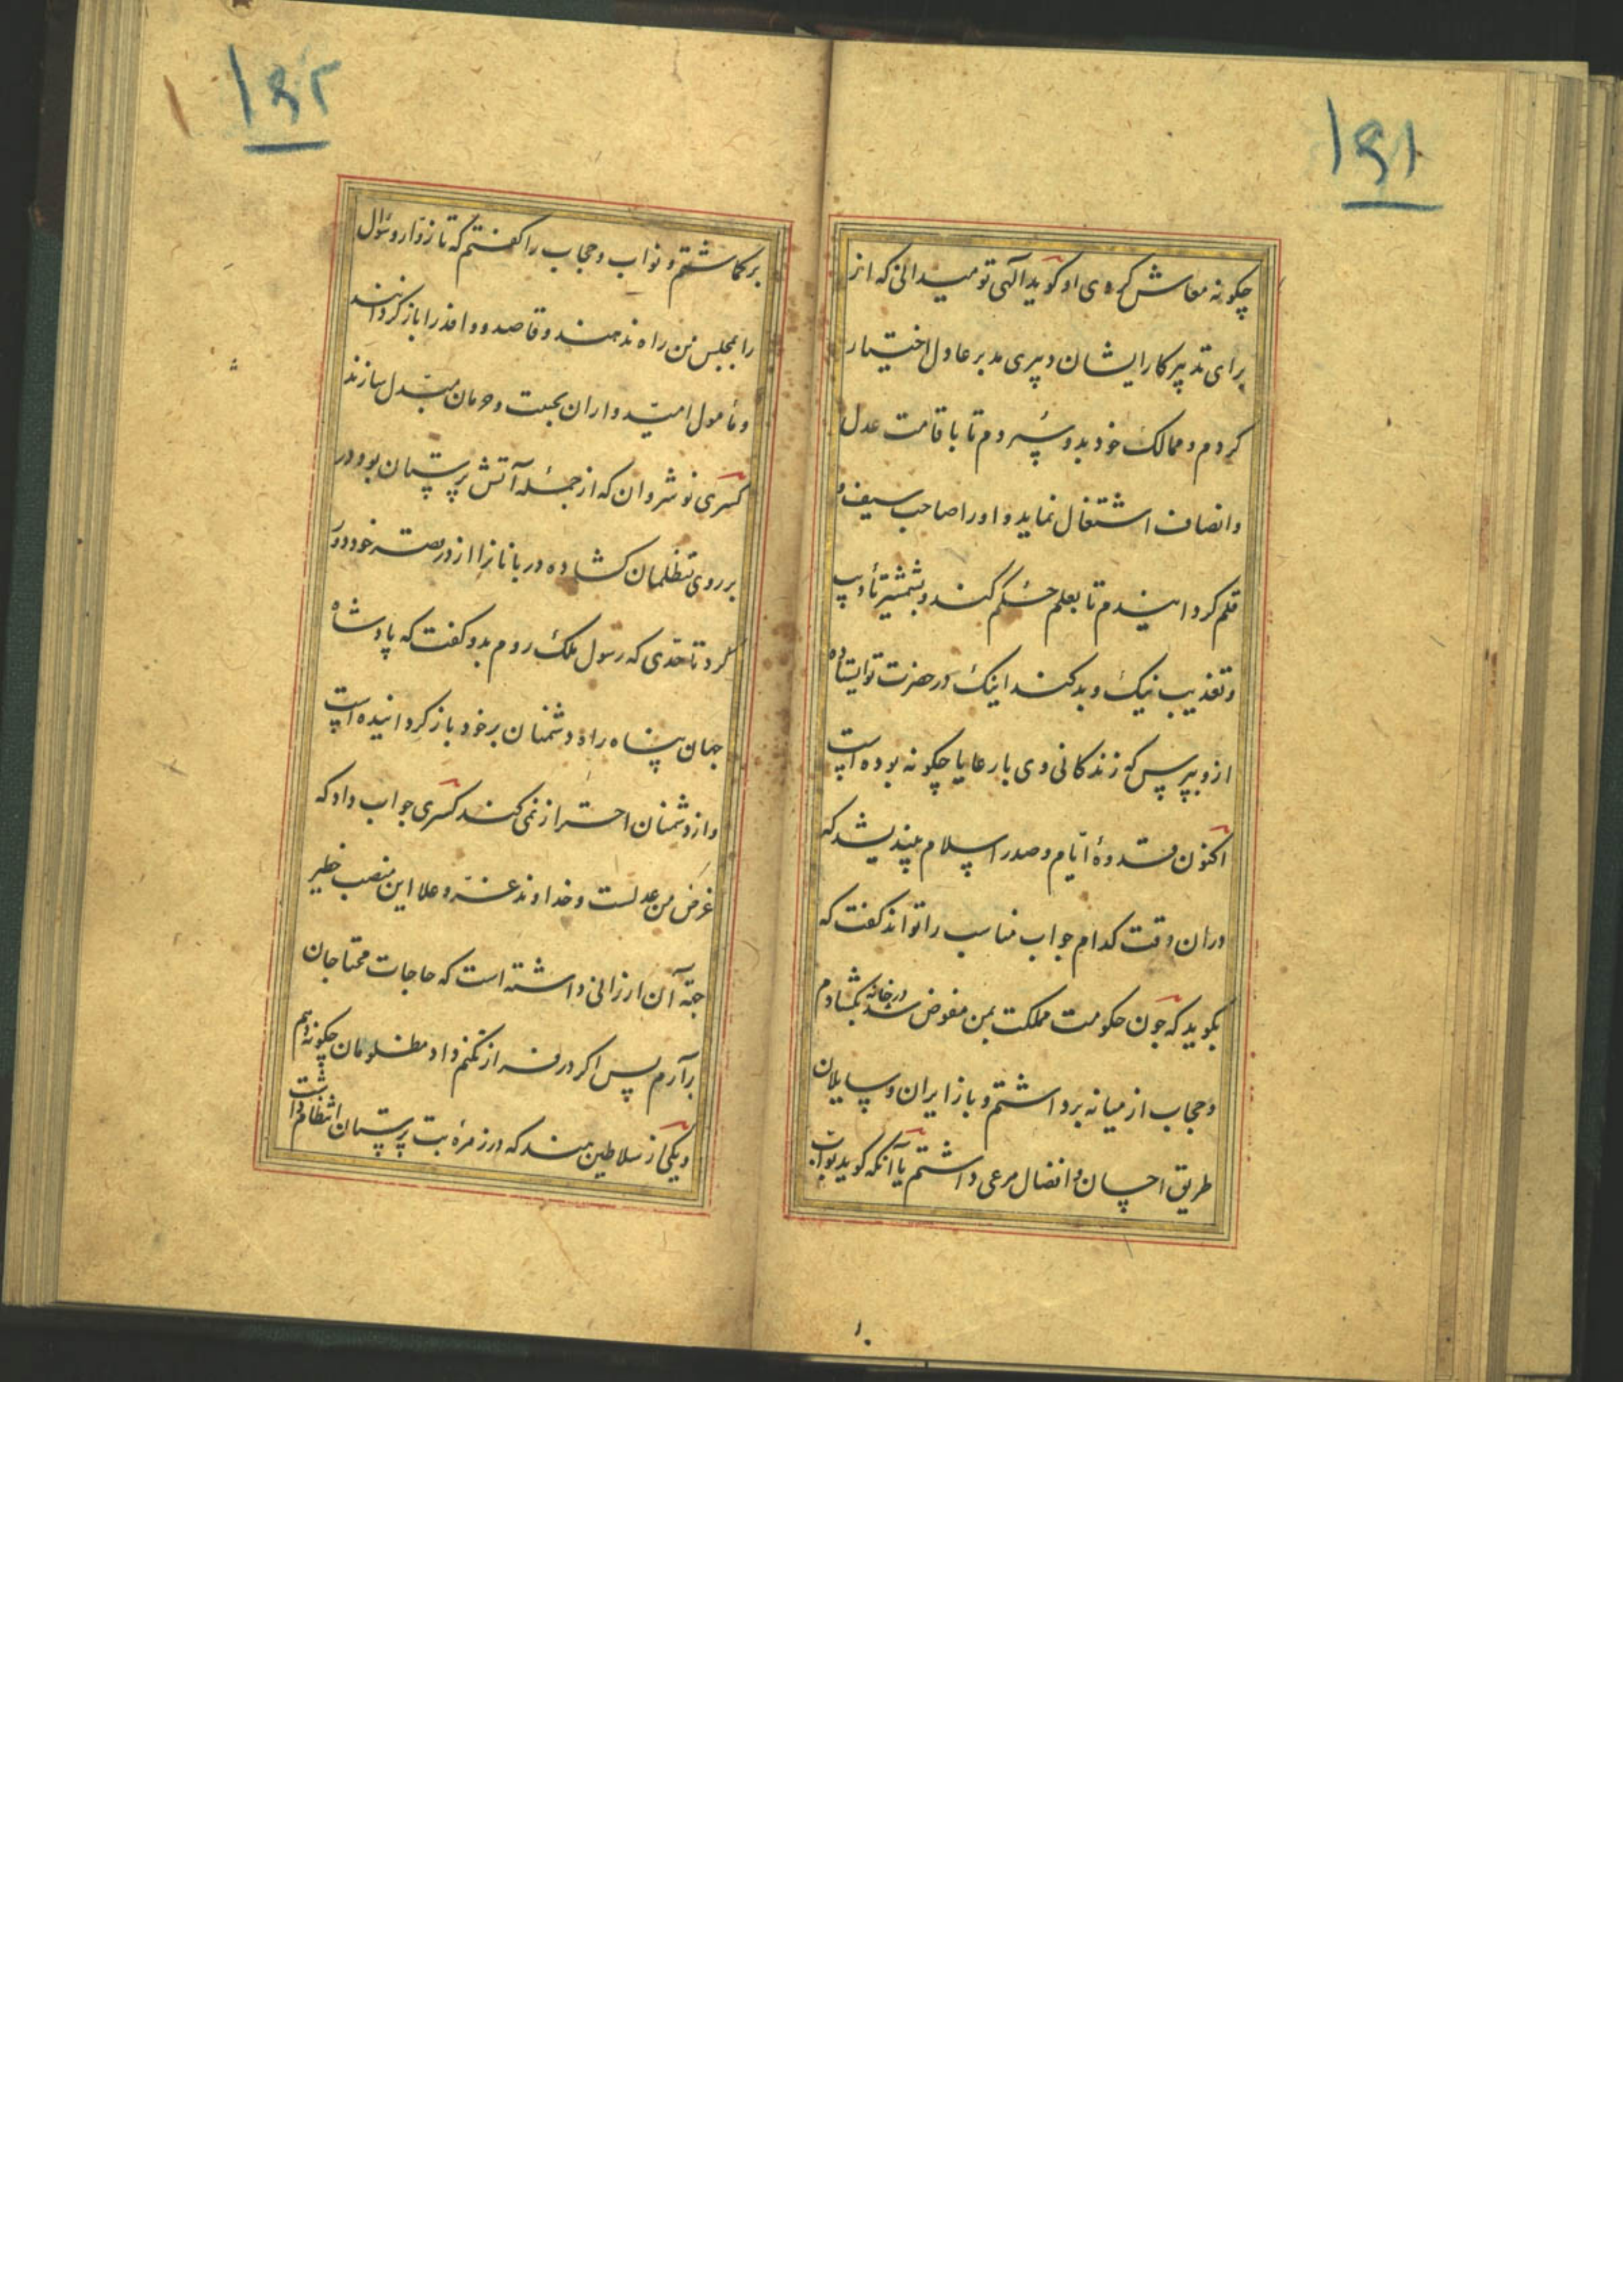 ۱۴۱
چکونه معاش کرده‌ی او کوید الهی تو میدانی که از
برای تدبیر کار ایشان دپیری مدبر عادل اختیار
کردم و ممالک خود بدو سپردم تا باقامت عدل
و انصاف اشتغال نماید و او را صاحب سیف و
قلم کردانیدم تا بعلم حکم کند و بشمشیر تأدیب
و تعذیب نیک و بد کند اینک در حضرت تو ایستاده
ازو بپرس که زندکانی وی با رعایا چکونه بوده است
اکنون قدوهٔ ایّام و صدر اسلام بیندیشد که
دران وقت کدام جواب مناسب را تواند کفت که
بکوید که چون حکومت مملکت بمن مفوض شد در خانه بکشادم
و حجاب از میانه برداشتم و با زایران و سایلان
طریق احسان و افضال مرعی داشتم یا آنکه کوید بواب
۱۴۲
برکماشتم و نواب و حجاب را کفتم که تا زوّار و سُؤال
را بمجلس من راه ندهند و قاصد و وافد را باز کردانند
و مأمول امیدواران بخیبت و حرمان مبدل سازند
کسری نوشروان که از جملهٔ آتش پرستان بود در
بر روی متظلمان کشاده دربانانرا از در قصر خود دور
کرد تا حدّی که رسول ملک روم بدو کفت که پادشاه
جهان پناه راه دشمنان بر خود باز کردانیده است
و از دشمنان احتراز نمی کند کسری جواب داد که
غرض من عدلست و خداوند عزّ و علا این منصب خطیر
جهة آن ارزانی داشته است که حاجات محتاجان
برآرم پس اکر در فراز نکنم داد مظلومان چکونه دهم
و یکی از سلاطین هند که در زمرهٔ بت پرستان انتظام داشت